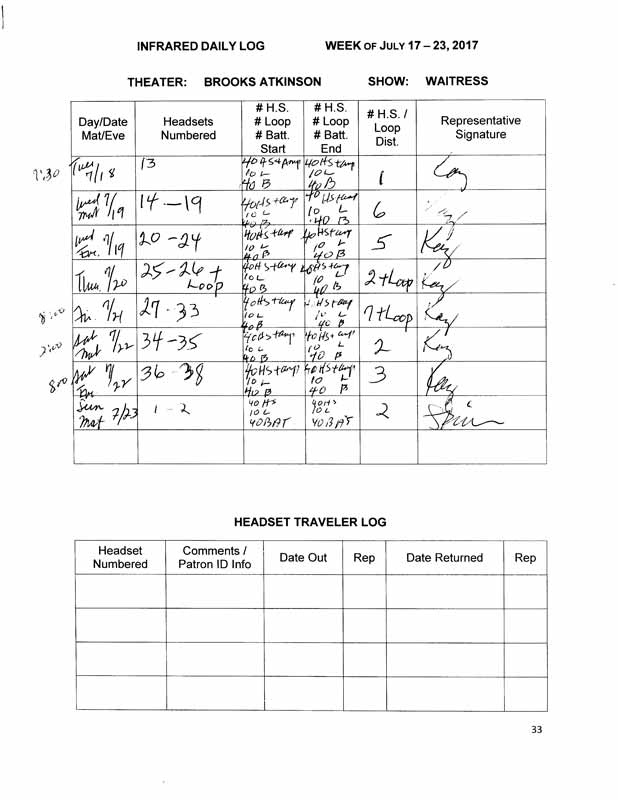 INFRARED DAILY LOG WEEK OF JULY 17 – 23, 2017
THEATER: BROOKS ATKINSON SHOW: WAITRESS
Day/Date Mat/Eve
Headsets Numbered
# H.S. # Loop # Batt. Start
# H.S. # Loop # Batt. End
# H.S. / Loop Dist.
Representative Signature
7:30 Tues 7/18 13 40 HS + Amp 10 L 40 B 40 HS + amp 10 L 40 B 1 Kay
Wed Mat 7/19 14 – 19 40 HS + amp 10 L 40 B 40 HS + amp 10 L 40 B 6 Kay
Wed Eve. 7/19 20 – 24 40 HS + amp 10 L 40 B 40 HS + amp 10 L 40 B 5 Kay
Thu. 7/20 25 – 26 + Loop 40 HS + amp 10 L 40 B 40 HS + amp 10 L 40 B 2 + Loop Kay
8:00 Fri. 7/21 27 - 33 40 HS + amp 10 L 40 B HS + amp 10 L 40 B 7 + Loop Kay
2:00 Sat Mat 7/22 34 – 35 40 HS + amp 10 L 40 B 40 HS + amp 10 L 40 B 2 Kay
800 Sat Eve 7/22 36 - 38 40 HS + amp 10 L 40 B 40 HS + amp 10 L 40 B 3 Kay
Sun Mat 7/23 1 - 2 40 HS 10 L 40 BAT 40 HS 10 L 40 BAT 2
HEADSET TRAVELER LOG
Headset Numbered
Comments / Patron ID Info
Date Out
Rep
Date Returned
Rep
33